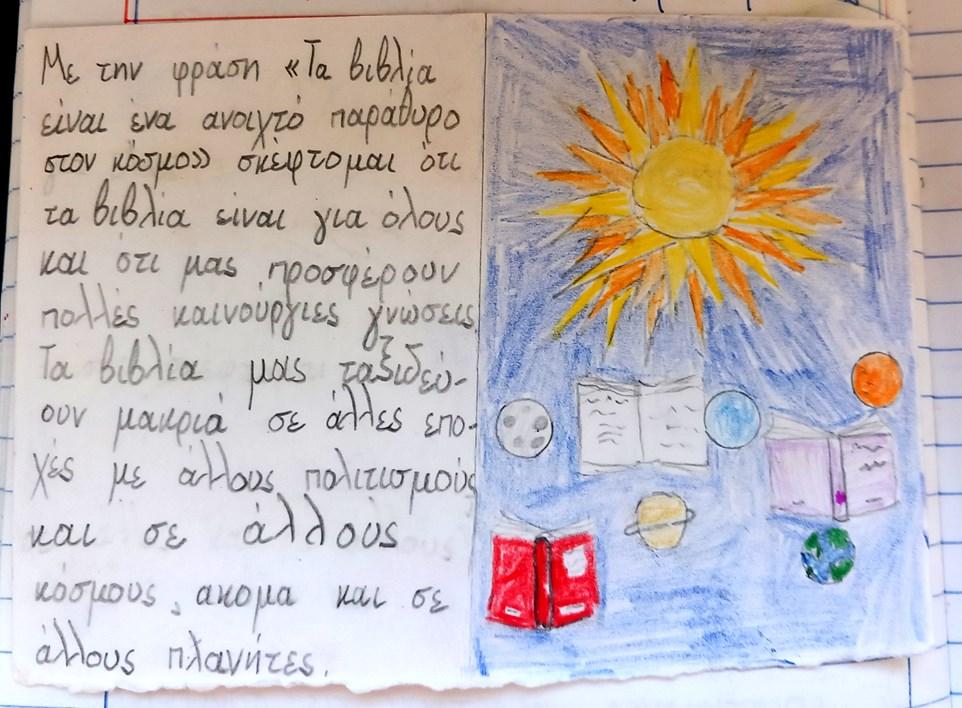 Με την φράση «Τα βιβλία
είναι ένα ανοιχτό παράθυρο
στον κόσμο» σκέφτομαι ότι
τα βιβλία είναι για όλους
και ότι μας προσφέρουν
πολλές καινούργιες γνώσεις.
Τα βιβλία μας ταξιδεύ-
ουν μακριά σε άλλες επο-
χές με άλλους πολιτισμούς
και σε άλλους
κόσμους, ακομα και σε
άλλους πλανήτες.